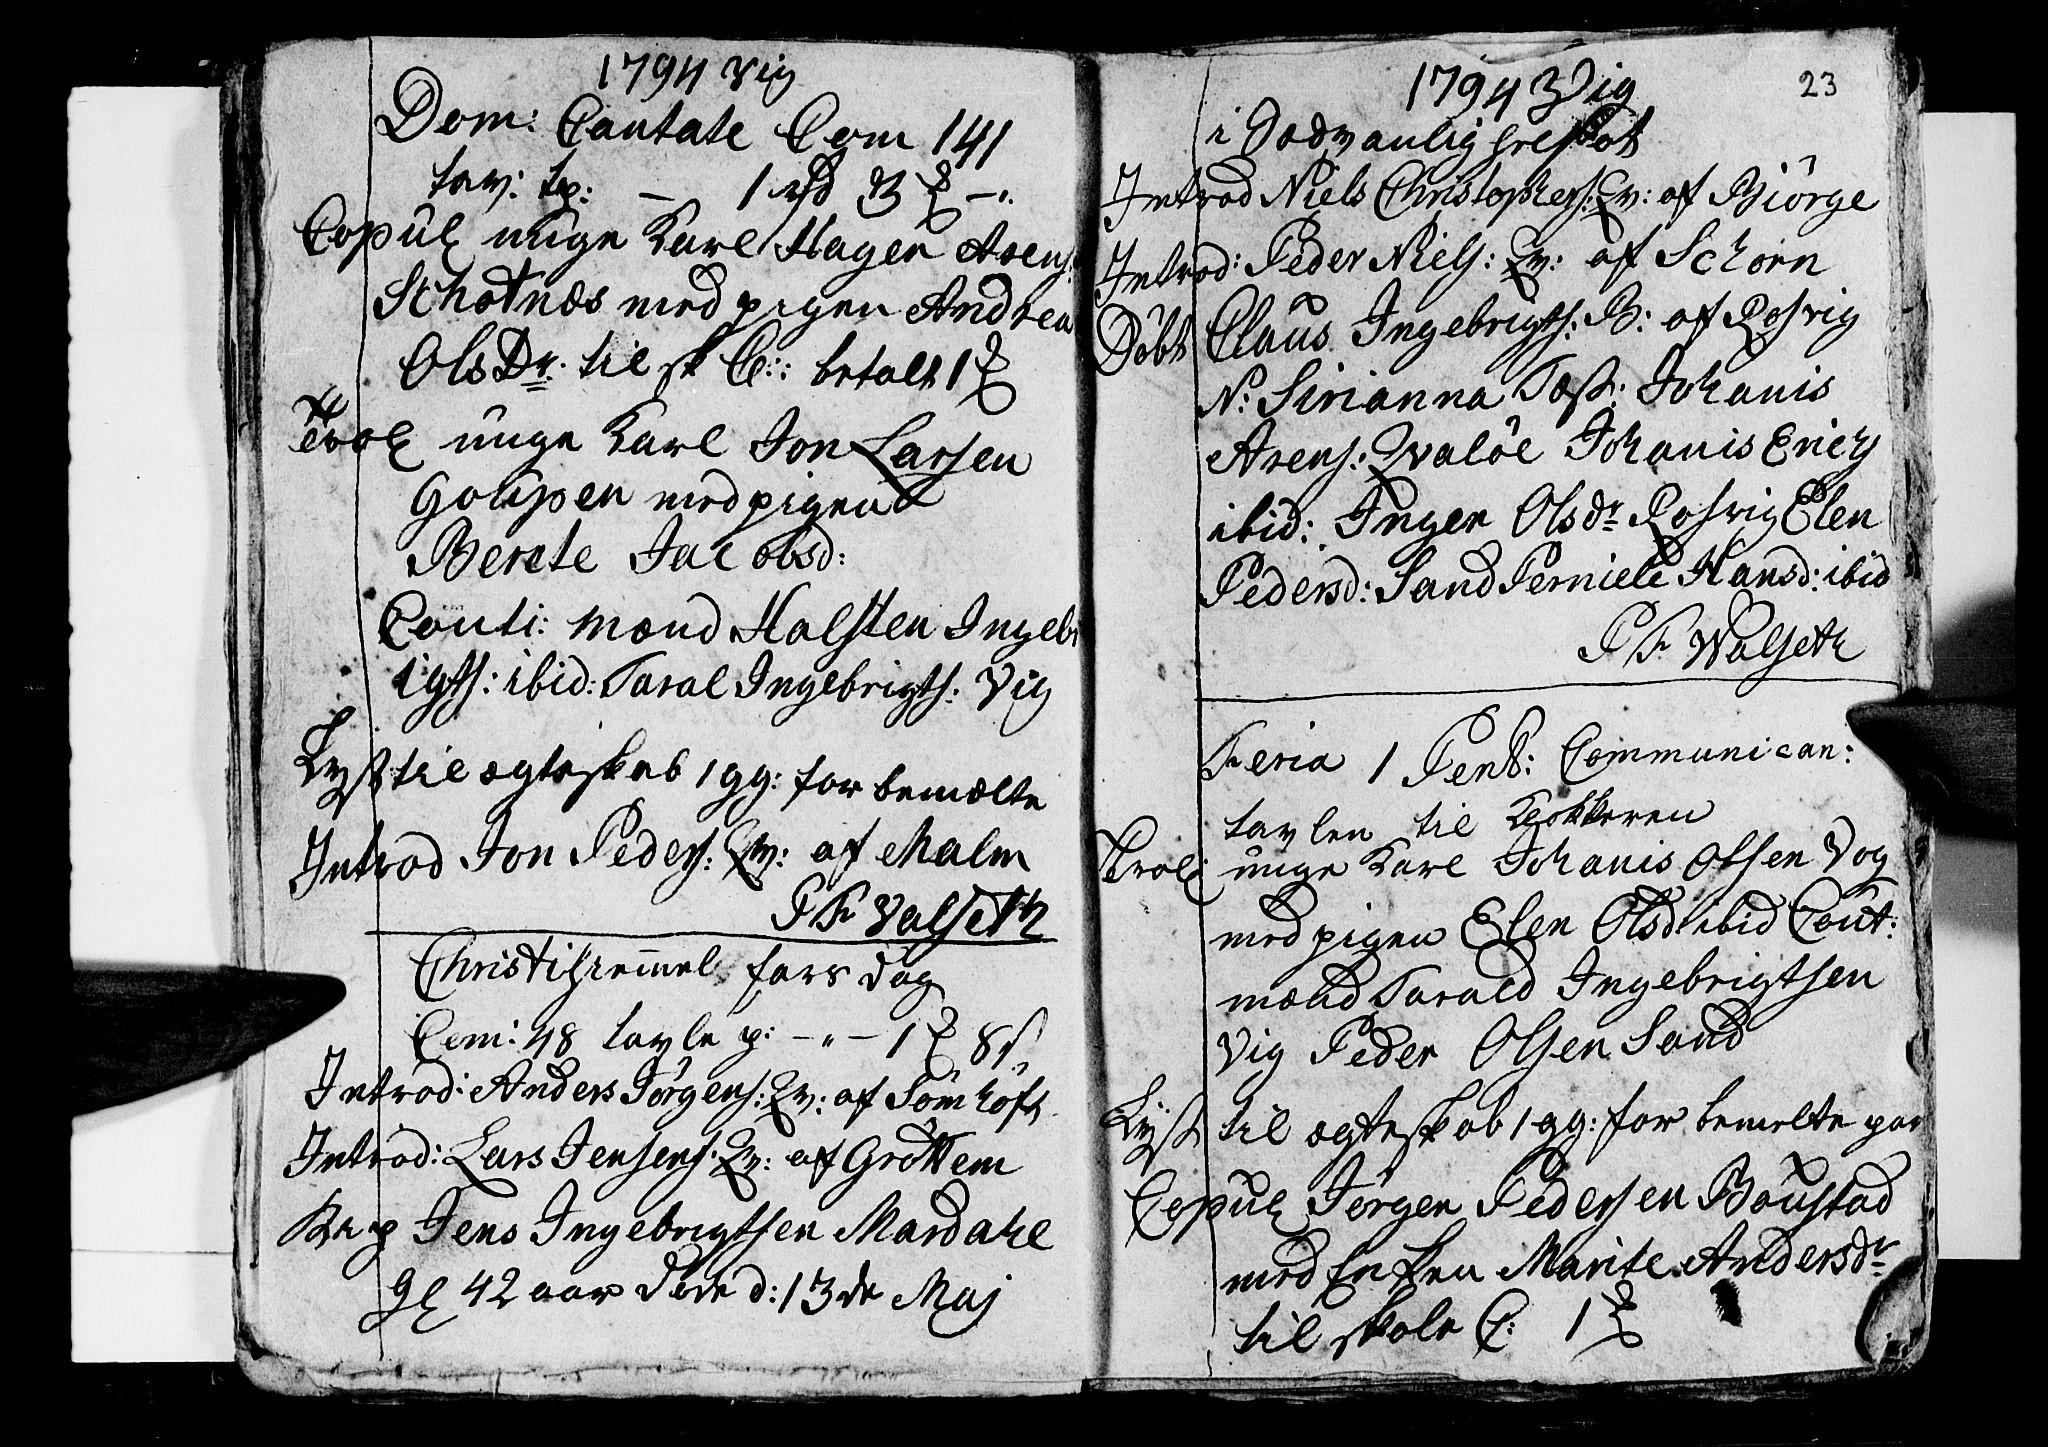 1794 Vig
Dom: Cantate Com 141
tav: p: — 1 rd 3 —"
Copul unge Karl Hagen Arens:
Schotnæs med pigen Andrea
Ols Dr. til sk C: betalt 1
Trol unge Karl Jon Larsen
Goupen med pigen
Berete Jacobsd:
Couti: mænd Halsten Ingebr
igts: ibid: Taral Ingebrigts: Vig
Lyst til ægteskab 1 gg: for bemælte
Introd Jon Peders: Qv: af Malm
P F Valseth
Christi Hemmel fars dag
Com: 48 tavle p: —"— 1 8 s
Introd: Anders Jørgens: Qv: af Sømhöft
Introd: Lars Jensens: Qv: af Gröttem
Jens Ingebrigtsen Mardahl
gl 42 aar døde d: 13de Maj
23
1794 Vig
i Dødvanlighed
Introd Niels Christophers: Qv: af Biörge
Introd: Peder Niels: Qv: af Schorn
Döbt Claus Ingebrigts: B: af Rosvig
N: Sirianna Test: Johanis
Arens: Qvalöe Johanis Erichs
ibid: Inger Olsdr Rosvig Elen
Pedersd: Sand Perniele Hansd: ibid
P F Walseth
Feria 1 Pent: Communican:
tavlen til Klokkeren
Trol: unge Karl Johanis Olsen Vog
med pigen Elen Olsd ibid Cout:
mænd Tarald Ingebrigtsen
Vig Peder Olsen Sand
Lyst til ægteskab 1 gg: for bemelte par
Copul Jörgen Pedersen Boustad
med Enken Marite Andersdr
til skole C: 1